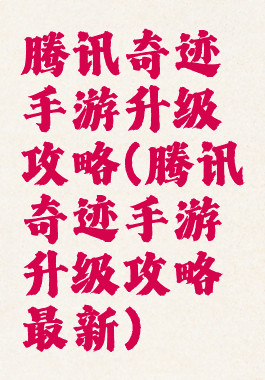 腾讯奇迹
手游升级
攻略(腾讯
奇迹手游
升级攻略
最新)